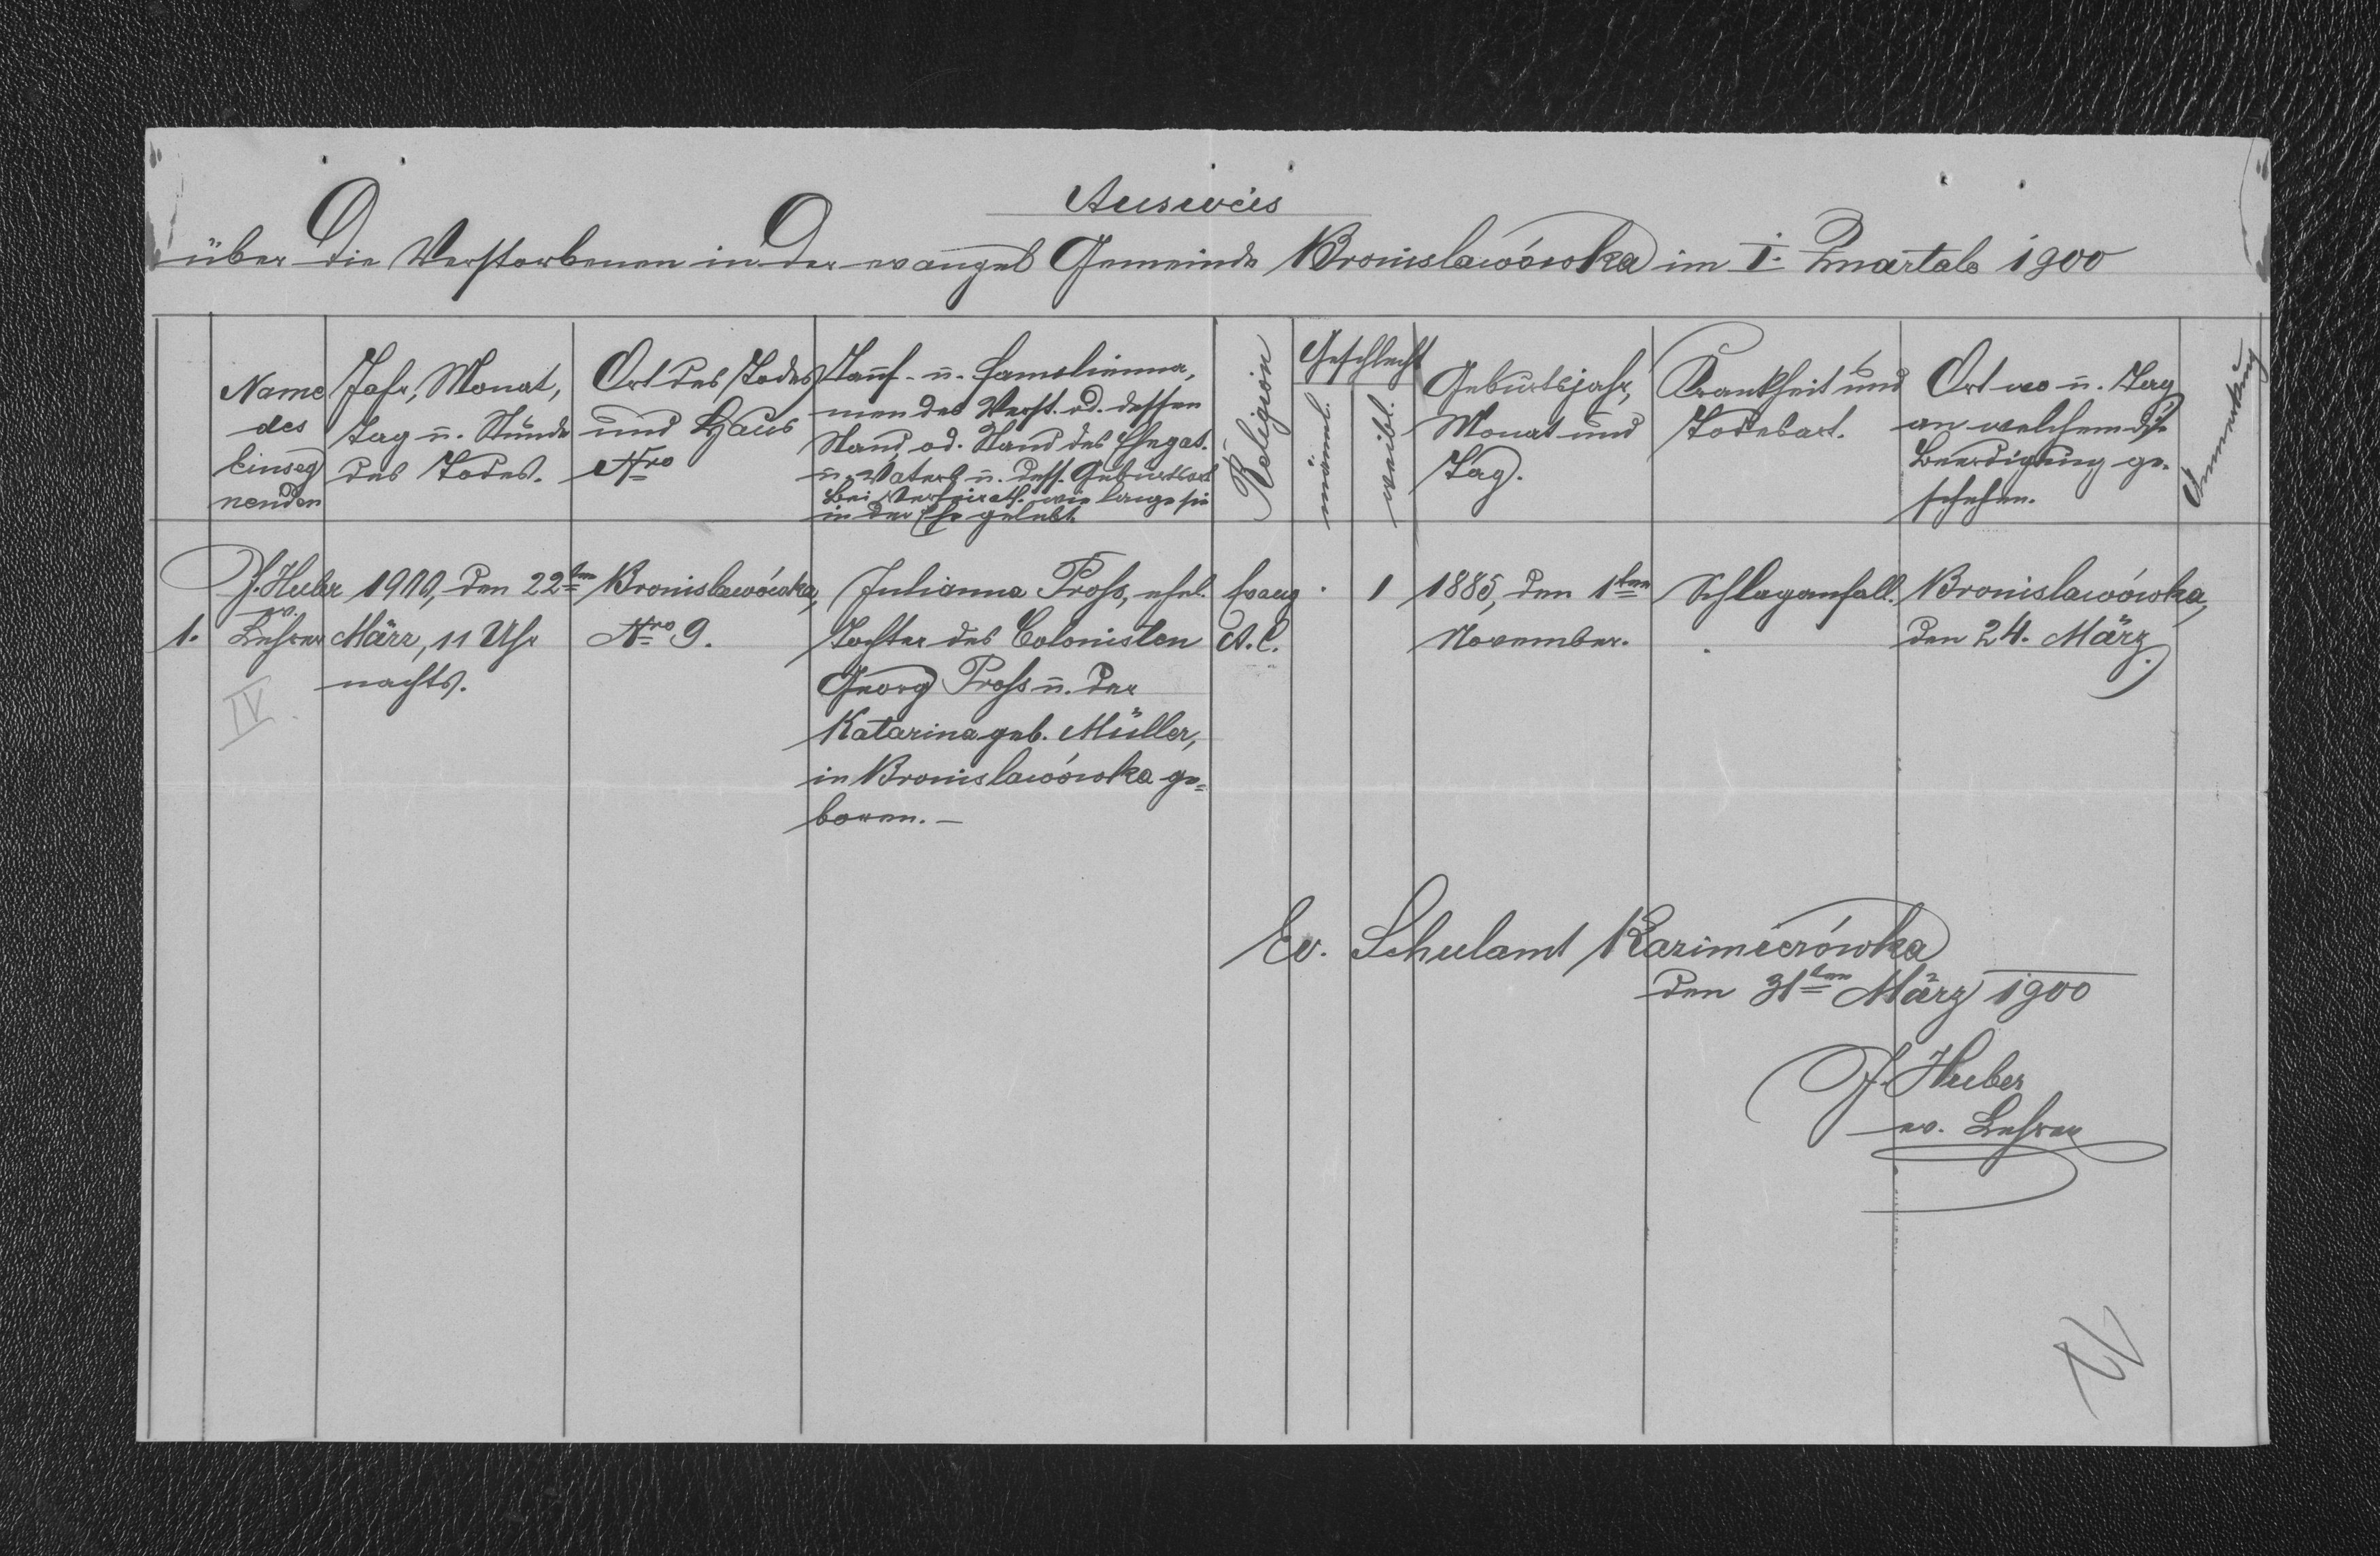 Ausweis
über die Verstorbenen in der evangel Gemeinde Bronislawówka im I. Quartale 1900
Name
des
Einseg
nenden
Jahr, Monat,
Tag u. Stunde
des Todes.
Ort des Todes
und Haus
Nro
Tauf- u. Familienna,
men des Verst. od. dessen
Stand, od. Stand des Ehegat.
u. Vaters u. dess. Geburtsort
bei Verheirath. wie lange sie
in der Ehe gelebt.
Religion
Geschlecht
männl.
weibl.
Geburtsjahr,
Monat und
Tag.
Krankheit und
Todesart.
Ort wo u. Tag
an welchem die
Beerdigung ge-
schehen.
Anmerkung
1.
J. Huber
ev.
Lehrer
IV.
1900, den 22ten
März, 11 Uhr
nachts.
Bronislawówka,
Nro 9.
Julianna Proß, ehel.
Tochter des Colonisten
Georg Proß u. der
Katarina geb. Müller,
in Bronislawówka ge=
boren. —
Evang
A. C.
1
1885, den 1ten
November.
Schlaganfall.
Bronislawówka,
den 24. März.
Ev. Schulamt Kazimierówka
den 31ten März 1900
J. Huber
ev. Lehrer